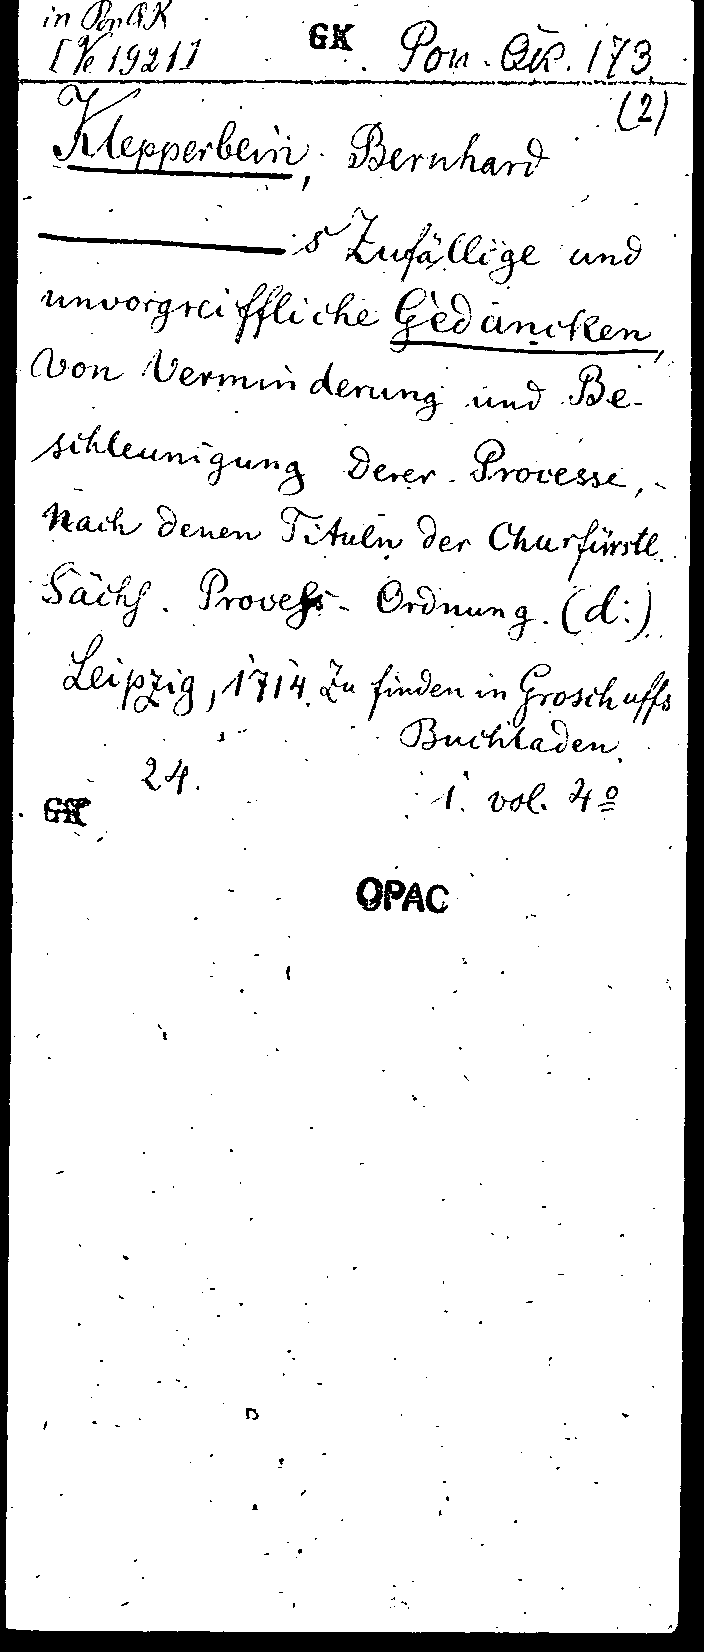 in Pon QK
[Ve 1921]
GK Pon. QK. 173
(2)
Klepperbein, Bernhard
——— s Zufällige und
unvorgreiffliche Gedancken,
von Verminderung und Be-
schleunigung derer Processe,
nach denen Tituln der Churfürstl.
Sächs. Process-Ordnung. (d:)
Leipzig, 1714. Zu finden in Groschuffs
Buchladen.
24.
1. vol. 4º
GK
OPAC